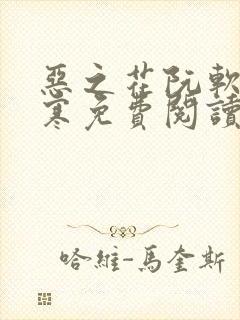 惡之花阮軟
寒免費閱讀
哈維-馬奎斯